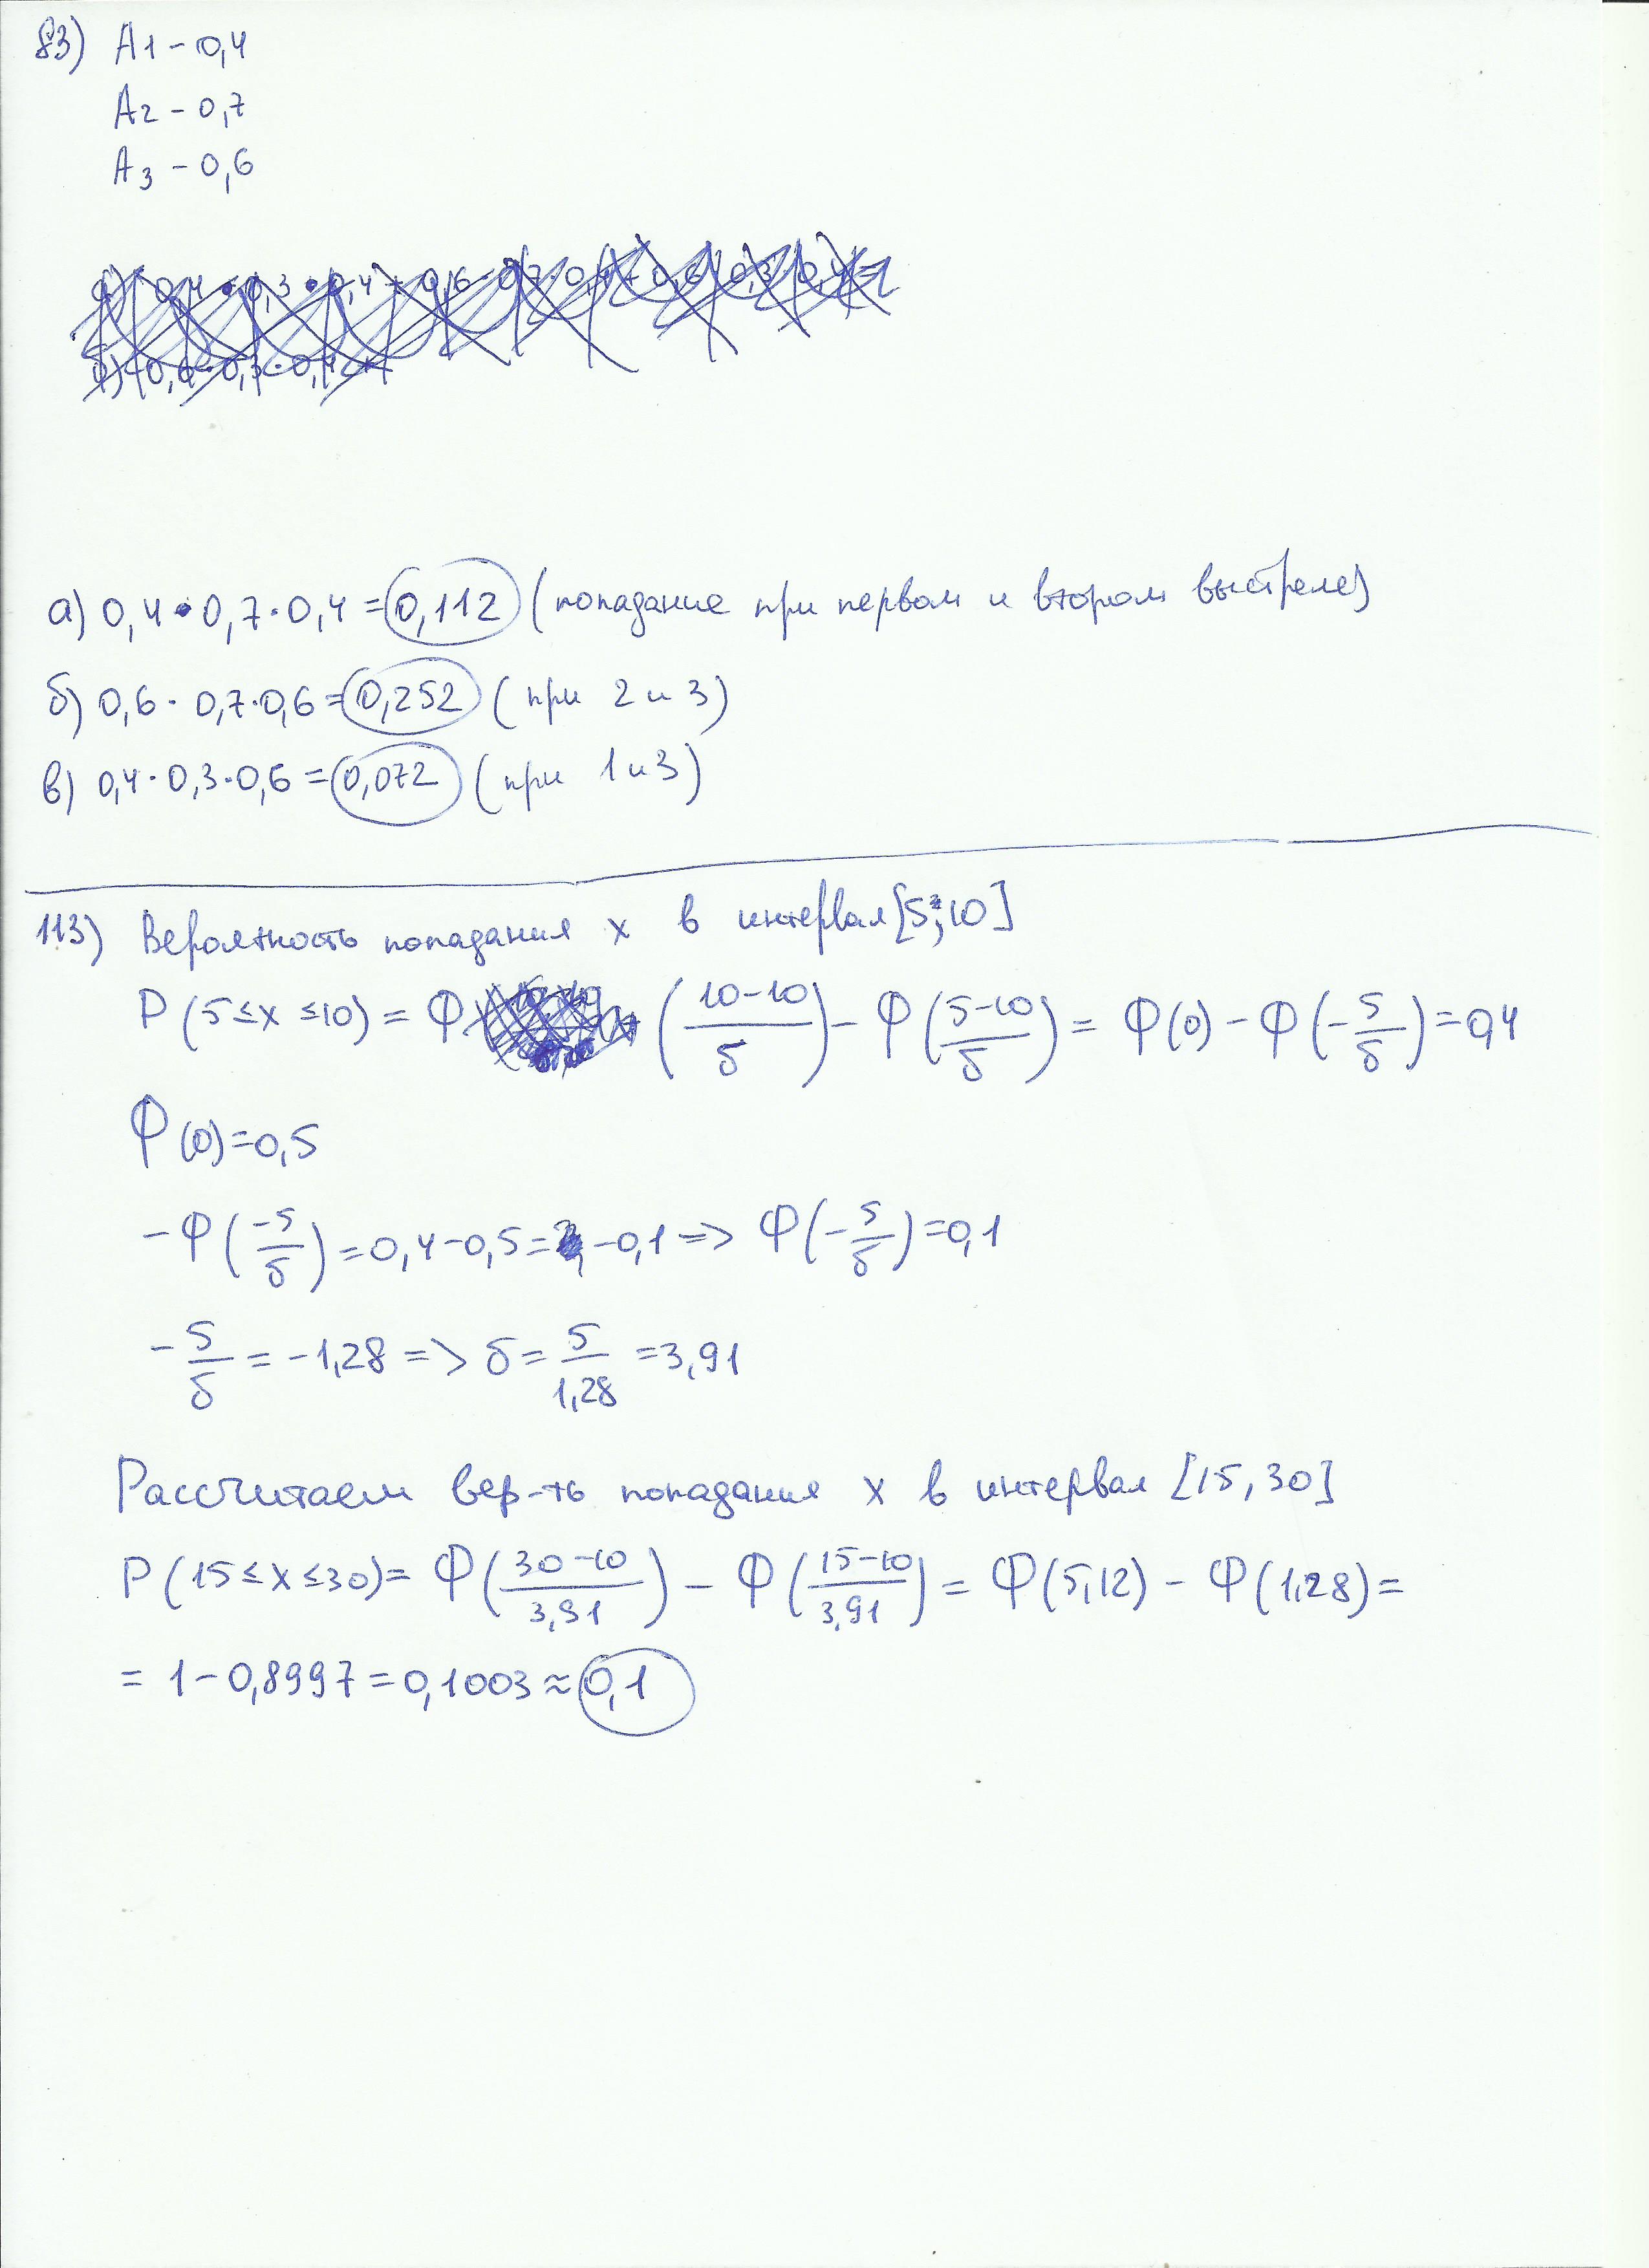 83) A1 - 0,4
A2 - 0,7
A3 - 0,6
а) 0,4 · 0,7 · 0,4 = 0,112 (попадание при первом и втором выстреле)
б) 0,6 · 0,7 · 0,6 = 0,252 (при 2 и 3)
в) 0,4 · 0,3 · 0,6 = 0,072 (при 1 и 3)
113) Вероятность попадания x в интервал [5; 10]
P (5 ≤ x ≤ 10) = Φ (10-10/δ) - Φ (5-10/δ) = Φ(0) - Φ (-5/δ) = 0,4
Φ (0) = 0,5
-Φ (-5/δ) = 0,4 - 0,5 = -0,1 => Φ (-5/δ) = 0,1
-5/δ = -1,28 => δ = 5/1,28 = 3,91
Рассчитаем вер-ть попадания x в интервал [15, 30]
P (15 ≤ x ≤ 30) = Φ (30-10/3,91) - Φ (15-10/3,91) = Φ (5,12) - Φ (1,28) =
= 1 - 0,8997 = 0,1003 ≈ 0,1